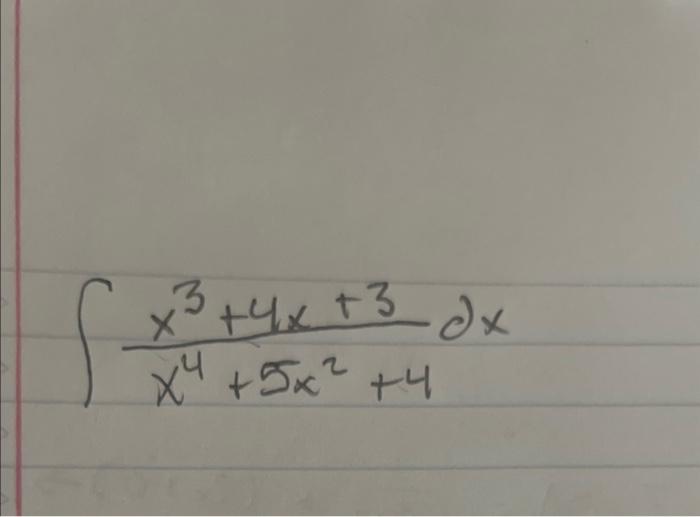 ∫ (x³ + 4x + 3)/(x⁴ + 5x² + 4) ∂x